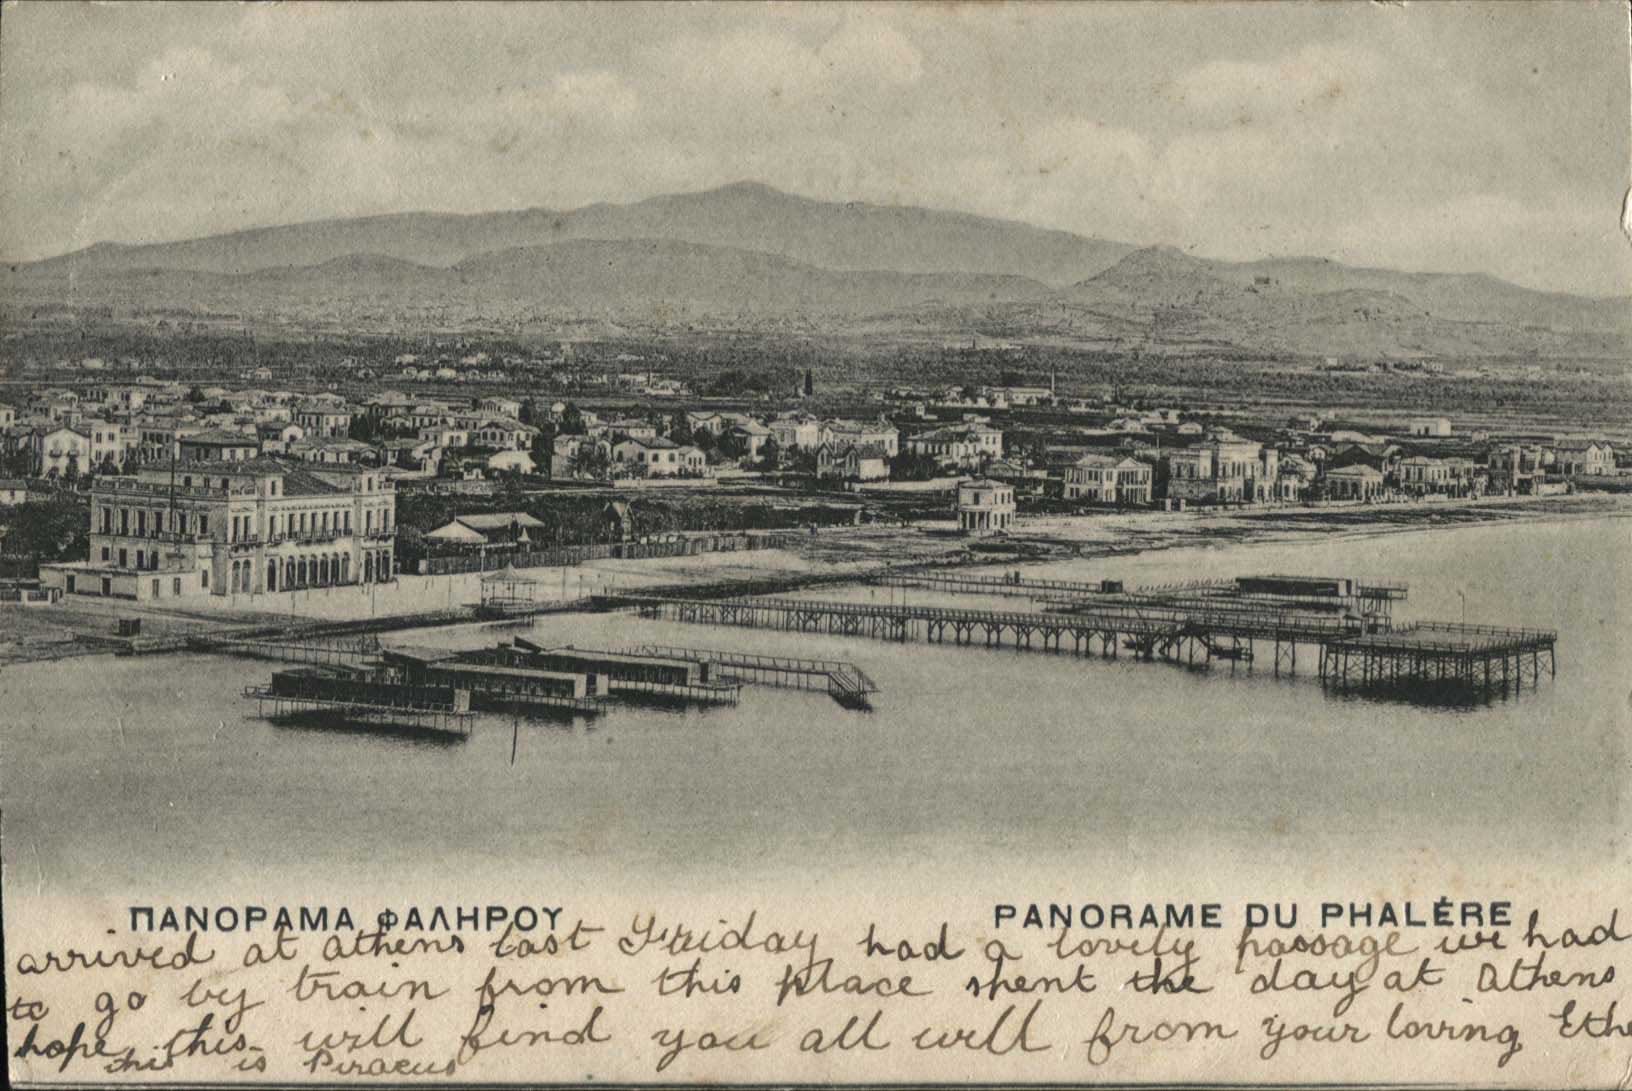 ΠΑΝΟΡΑΜΑ ΦΑΛΗΡΟΥ PANORAME DU PHALÈRE
arrived at athens last Friday had a lovely passage we had
to go by train from this place spent the day at athens
hope this will find you all well from your loving Ethe
this is Piraeus